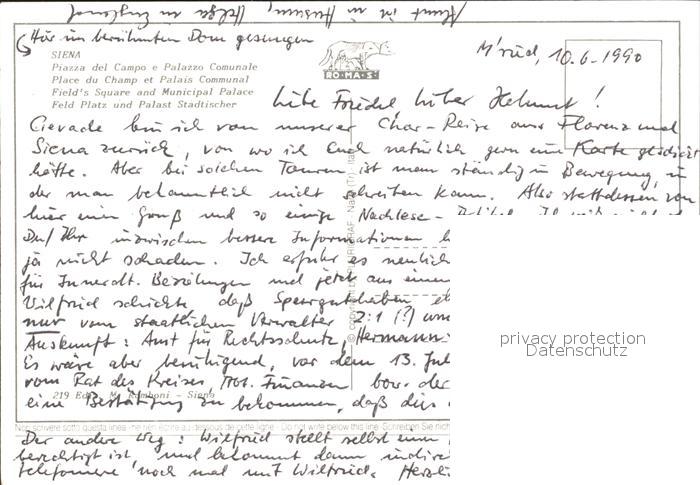 Horst ist in Husum, Helga in England
Hör im berühmten Dom gesungen
SIENA
Piazza del Campo e Palazzo Comunale
Place du Champ et Palais Communal
Field's Square and Municipal Palace
Feld Platz und Palast Stadtischer
RO-MA-S
M'rüd, 10.6-1990
Liebe Friedel lieber Helmut!
Gerade bin ich von unserer Chor-Reise aus Florenz und
Siena zurück, von wo ich Euch natürlich gern eine Karte geschickt
hätte. Aber bei solchen Touren ist man ständig in Bewegung, in
der man bekanntlich nicht schreiben kann. Also stattdessen von
hier einen Gruß und so einige Nachlese-
Du/Ihr inzwischen bessere Informationen
ja nicht schaden. Ich erfuhr es neulich
für Innerdt. Beziehungen und jetzt aus einem
Wilfried schickte, daß Sperrguthaben
nur vom staatlichen Verwalter 2:1 (?) um
Auskunft: Amt für Rechtsschutz, Hermann-
Es wäre aber beruhigend, vor dem 13. Jul
vom Rat des Kreises, Abt. Finanzen bzw. der
219 Ediz. M. Romboni - Siena
eine Bestätigung zu bekommen, daß dies
Non scrivere sotto questa linea - ne rien écrire au-dessous de cette ligne - Do not write below this line - Schreiben Sie nich
Der andere Weg: Wilfried stellt selbst einen
berechtigt ist, und bekommt dann indire
telefoniere noch mal mit Wilfried. Herzli
privacy protection
Datenschutz